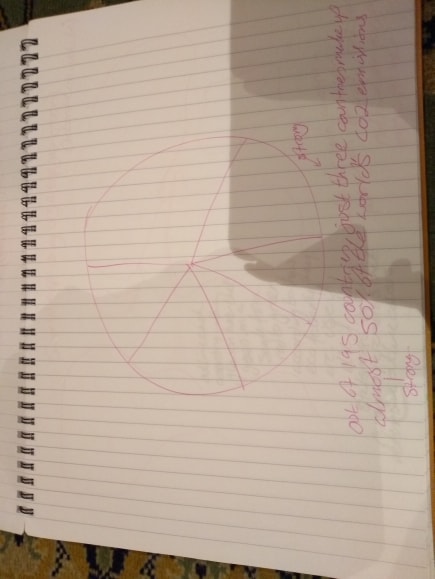 strong
out of 195 country just three countries make up
almost 50% of the world's CO2 emissions
strong